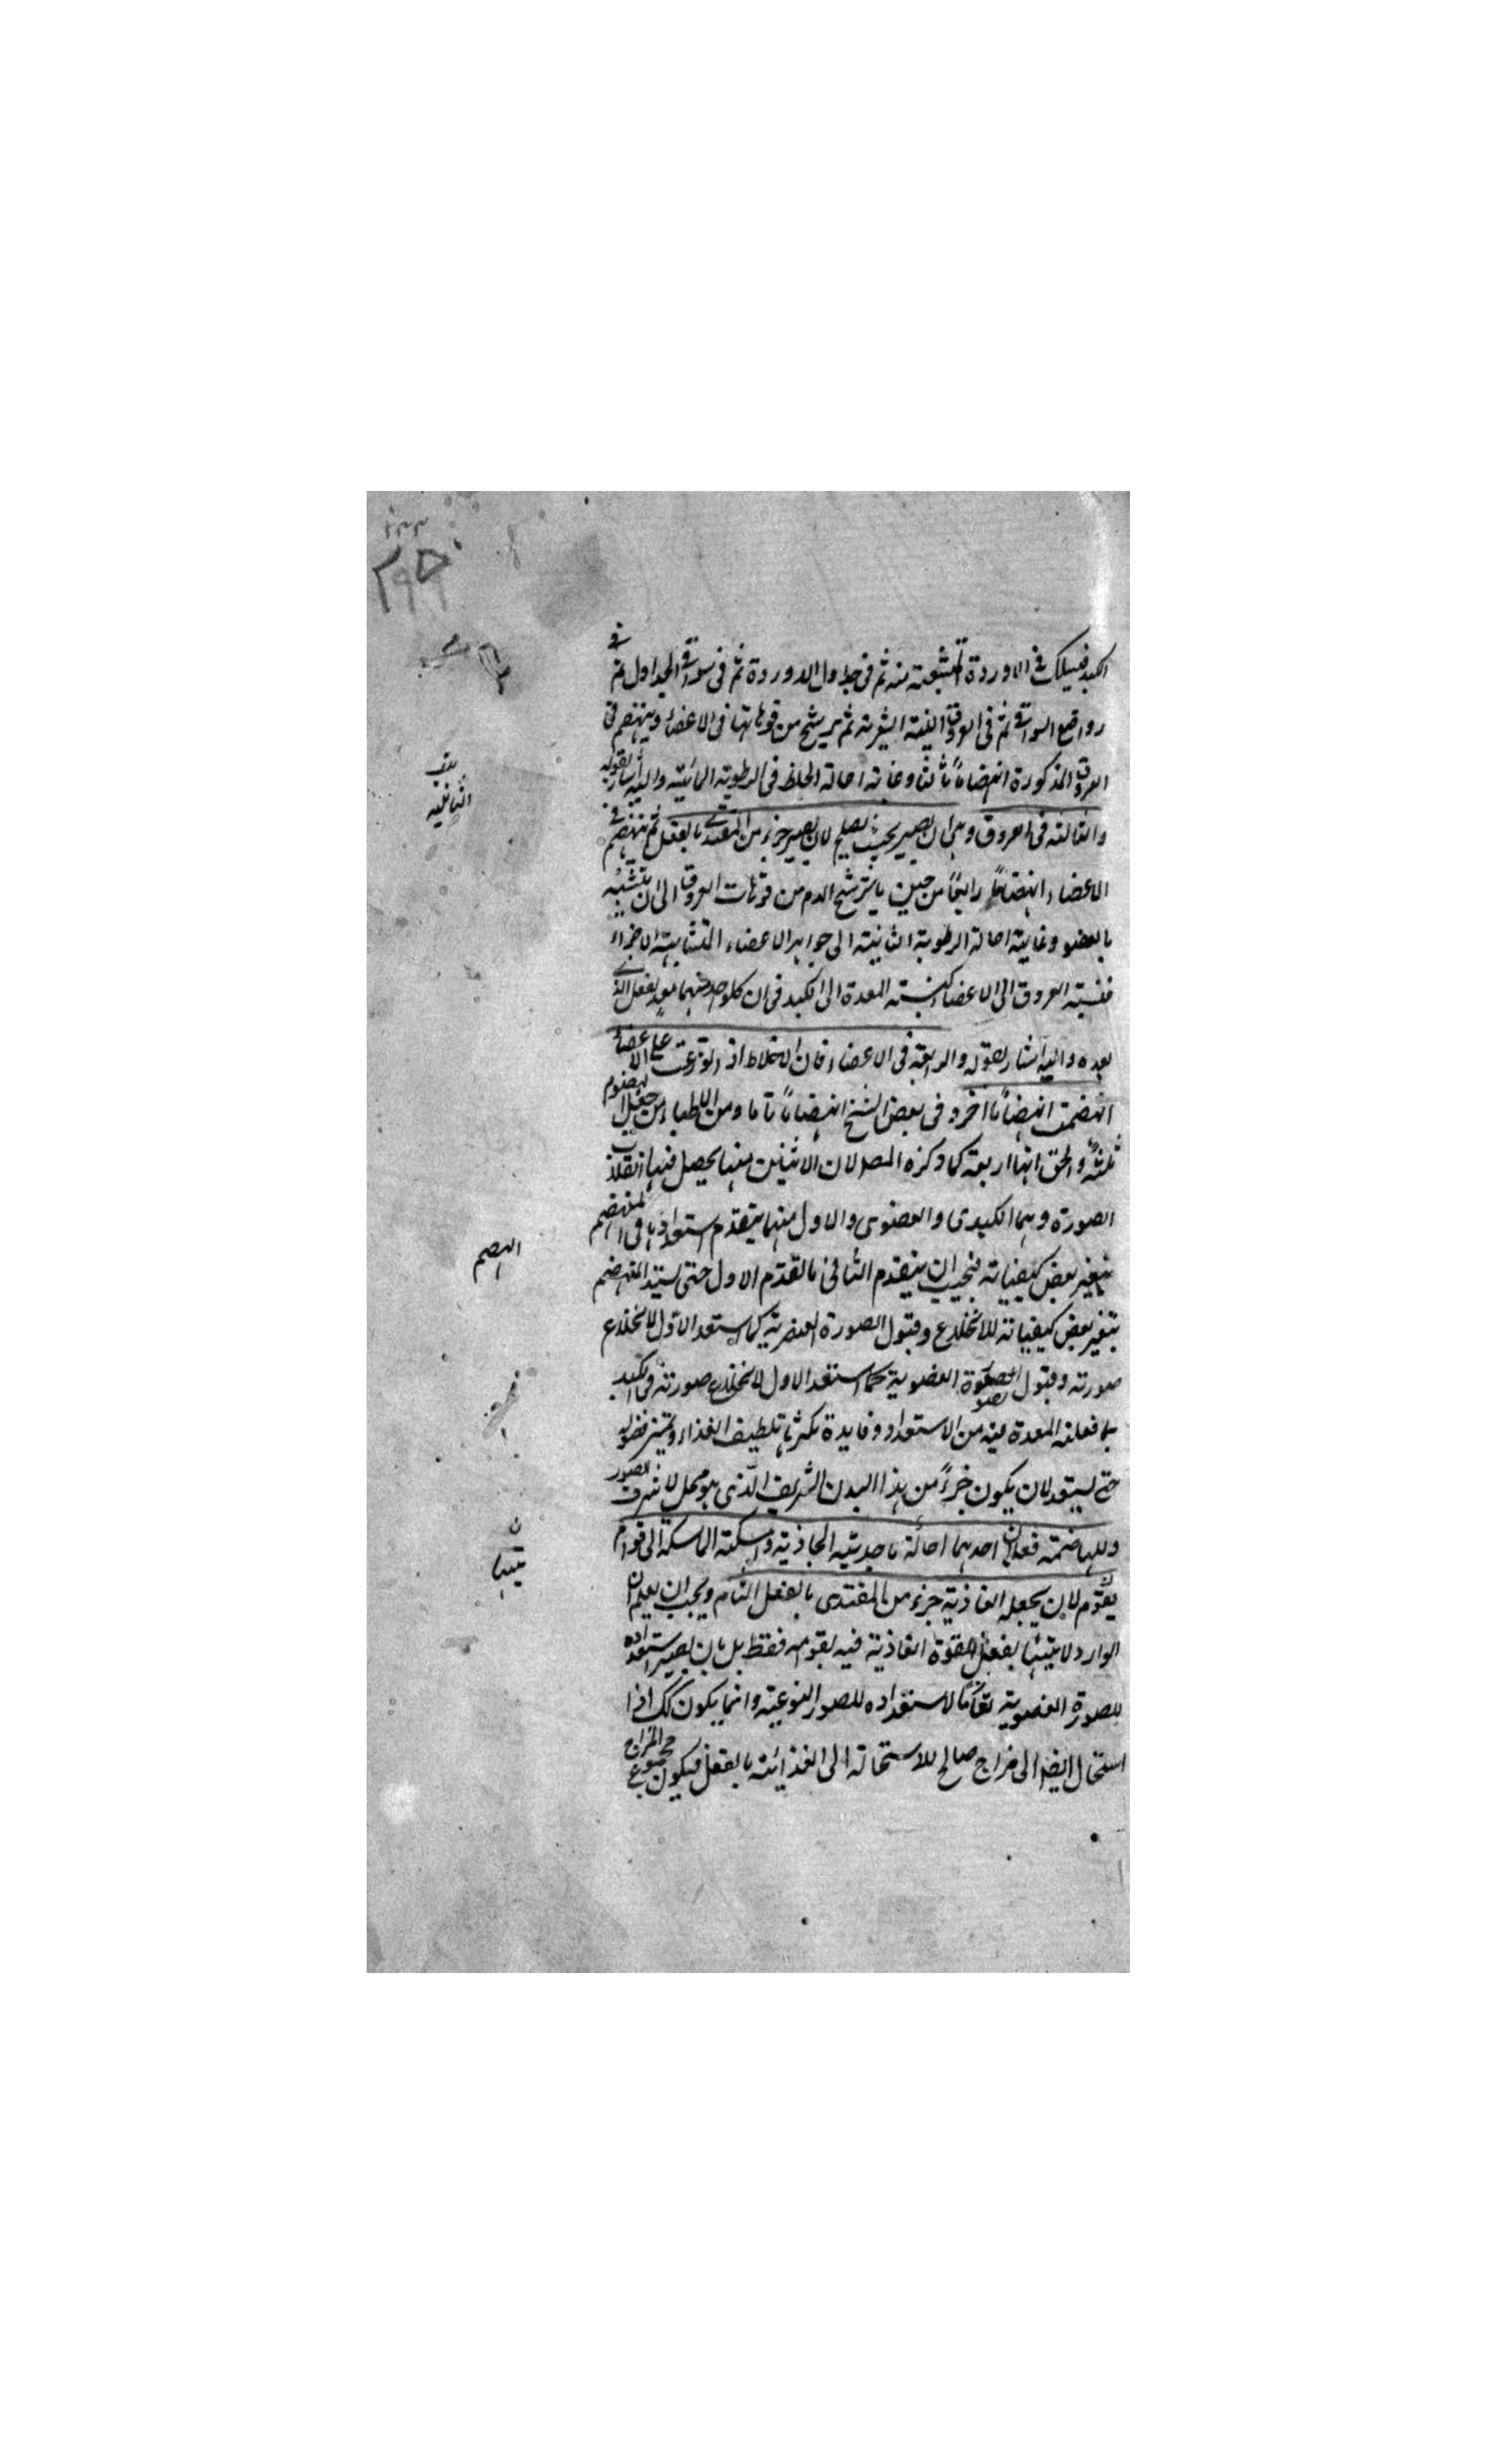 الكبد فيسلك في الاوردة المتشعبة منه ثم في جداول الاوردة ثم في سواقي الجداول ثم في
رواضع السواقي ثم في العروق الليفية الشعرية ثم يرشح من فوهاتها في الاعضاء وينهضم في
العروق المذكورة انهضاماً ثالثاً وغايته احالة الخلط في الرطوبة الثانية واليه اشار بقوله
والثالثة في العروق وهي ان يصير بحيث يصلح لان يصير جزء من المغتذى بالفعل ثم ينهضم في
الاعضاء انهضاماً رابعاً من حين ما يترشح الدم من فوهات العروق الى ان يتشبه
بالعضو وغايته احالة الرطوبة الثانية الى جواهر الاعضاء المتشابهة الاجزاء
فنسبة العروق الى الاعضاء كنسبة المعدة الى الكبد في ان كلواحد منهما معد لفعل الذي
بعده واليه اشار بقوله والرابعة في الاعضاء فان الاخلاط اذا توزعت على الاعضاء
انهضمت انهضاماً اخر وفي بعض النسخ انهضاماً تاما ومن الاطباء من جعل الهضوم
ثلثة والحق انها اربعة كما ذكره المص لان الاثنين منها يحصل فيها انقلاب
الصورة وهما الكبدى والعضوى والاول منهما يتقدم استعدادها في المنهضم
بتغير بعض كيفياته فيجب ان يتقدم الثاني ما تقدم الاول حتى يستعد المنهضم
بتغير بعض كيفياته للانخلاع وقبول الصورة العنصرية كما استعد الاول للانخلاع
صورته وقبول الصورة العضوية كما استعد الاول لانخلاع صورته في الكبد
بما فعلته المعدة فيه من الاستعداد وفايدة تكثرها تلطيف الغذاء وتميز فضوله
حتى يستعد لان يكون جزءً من هذا البدن الشريف الذى هو محل لاشرف الصور
وللهاضمة فعلان احدهما احالة ما جذبته الجاذبة وامسكته الماسكة الى قوام
يقوم لان يجعله الغاذية جزء من المغتذى بالفعل التام ويجب ان يعلم ان
الوارد لا يتهيا لفعل القوة الغاذية فيه بقوامه فقط بل بان يصير استعداده
للصورة العضوية تاما لاستعداده للصور النوعية وانما يكون كك اذا
استحال ايضا الى مزاج صالح للاستحالة الى الغذائية بالفعل فيكون مجموع المزاج
الثانية
الهضم
ن
يتهيا